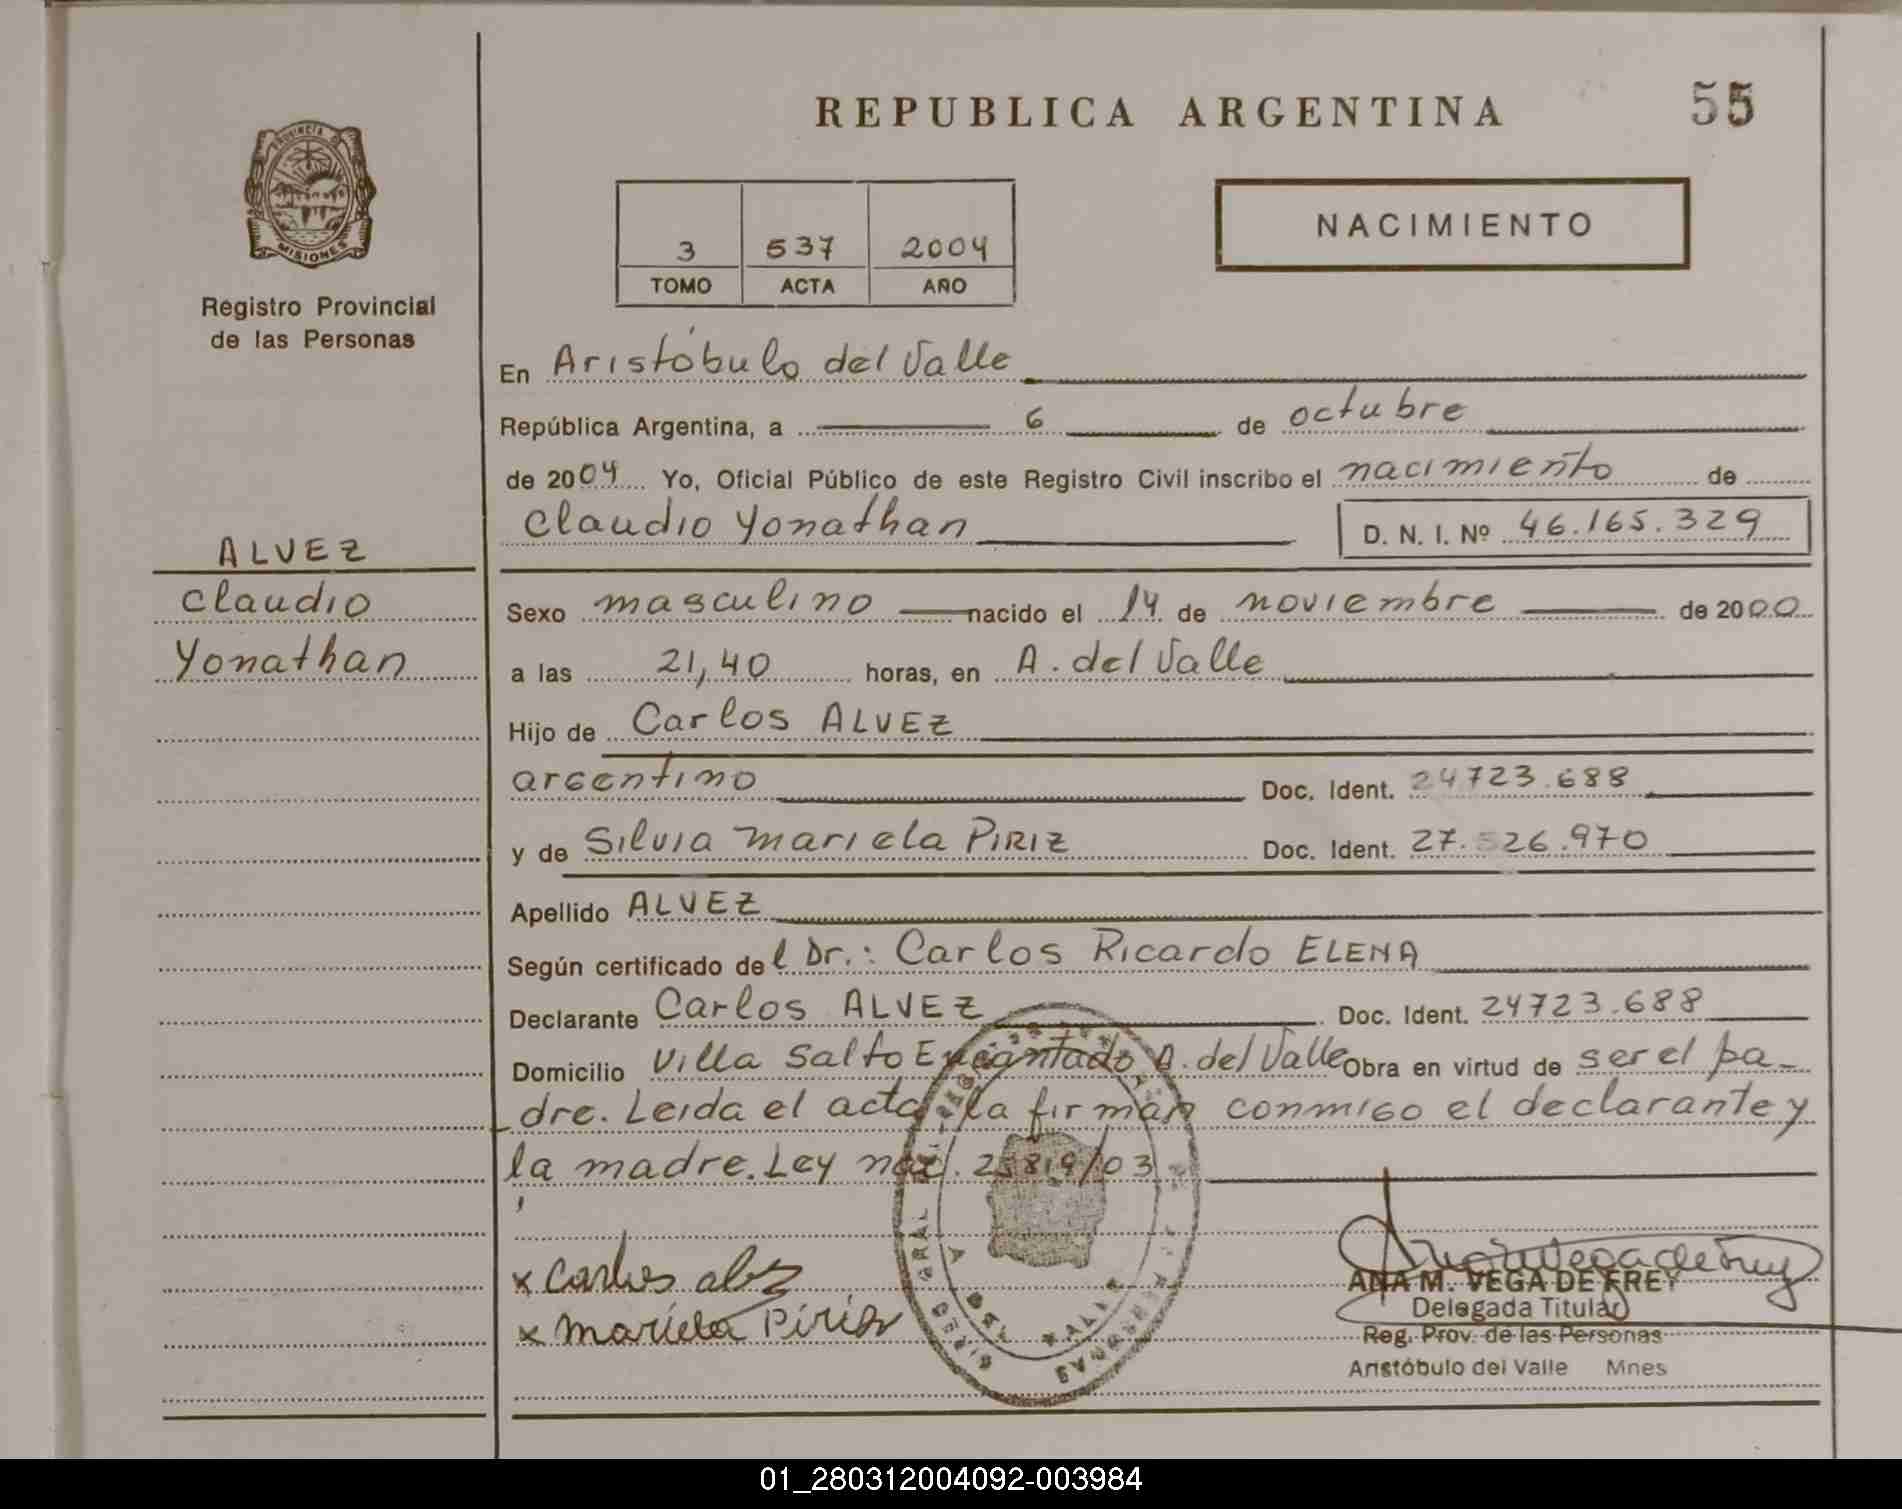 REPUBLICA ARGENTINA
55
PROVINCIA DE
MISIONES
Registro Provincial
de las Personas
3 537 2004
TOMO ACTA AÑO
NACIMIENTO
En Aristóbulo del Valle
República Argentina, a 6 de octubre
de 2004 Yo, Oficial Público de este Registro Civil inscribo el nacimiento de
Claudio Yonathan D. N. I. Nº 46.165.329
ALVEZ
Claudio
Yonathan
Sexo masculino nacido el 14 de noviembre de 2000
a las 21,40 horas, en A. del Valle
Hijo de Carlos ALVEZ
argentino Doc. Ident. 24723.688
y de Silvia Mariela PIRIZ Doc. Ident. 27.526.970
Apellido ALVEZ
Según certificado del Dr.: Carlos Ricardo ELENA
Declarante Carlos ALVEZ Doc. Ident. 24723.688
Domicilio Villa Salto Encantado A. del Valle Obra en virtud de ser el pa-
dre. Leida el acta la firman conmigo el declarante y
la madre. Ley nac. 25819/03
x Carlos alvez
x Mariela Piriz
ANA M. VEGA DE FREY
Delegada Titular
Reg. Prov. de las Personas
Aristóbulo del Valle Mnes
01_280312004092-003984